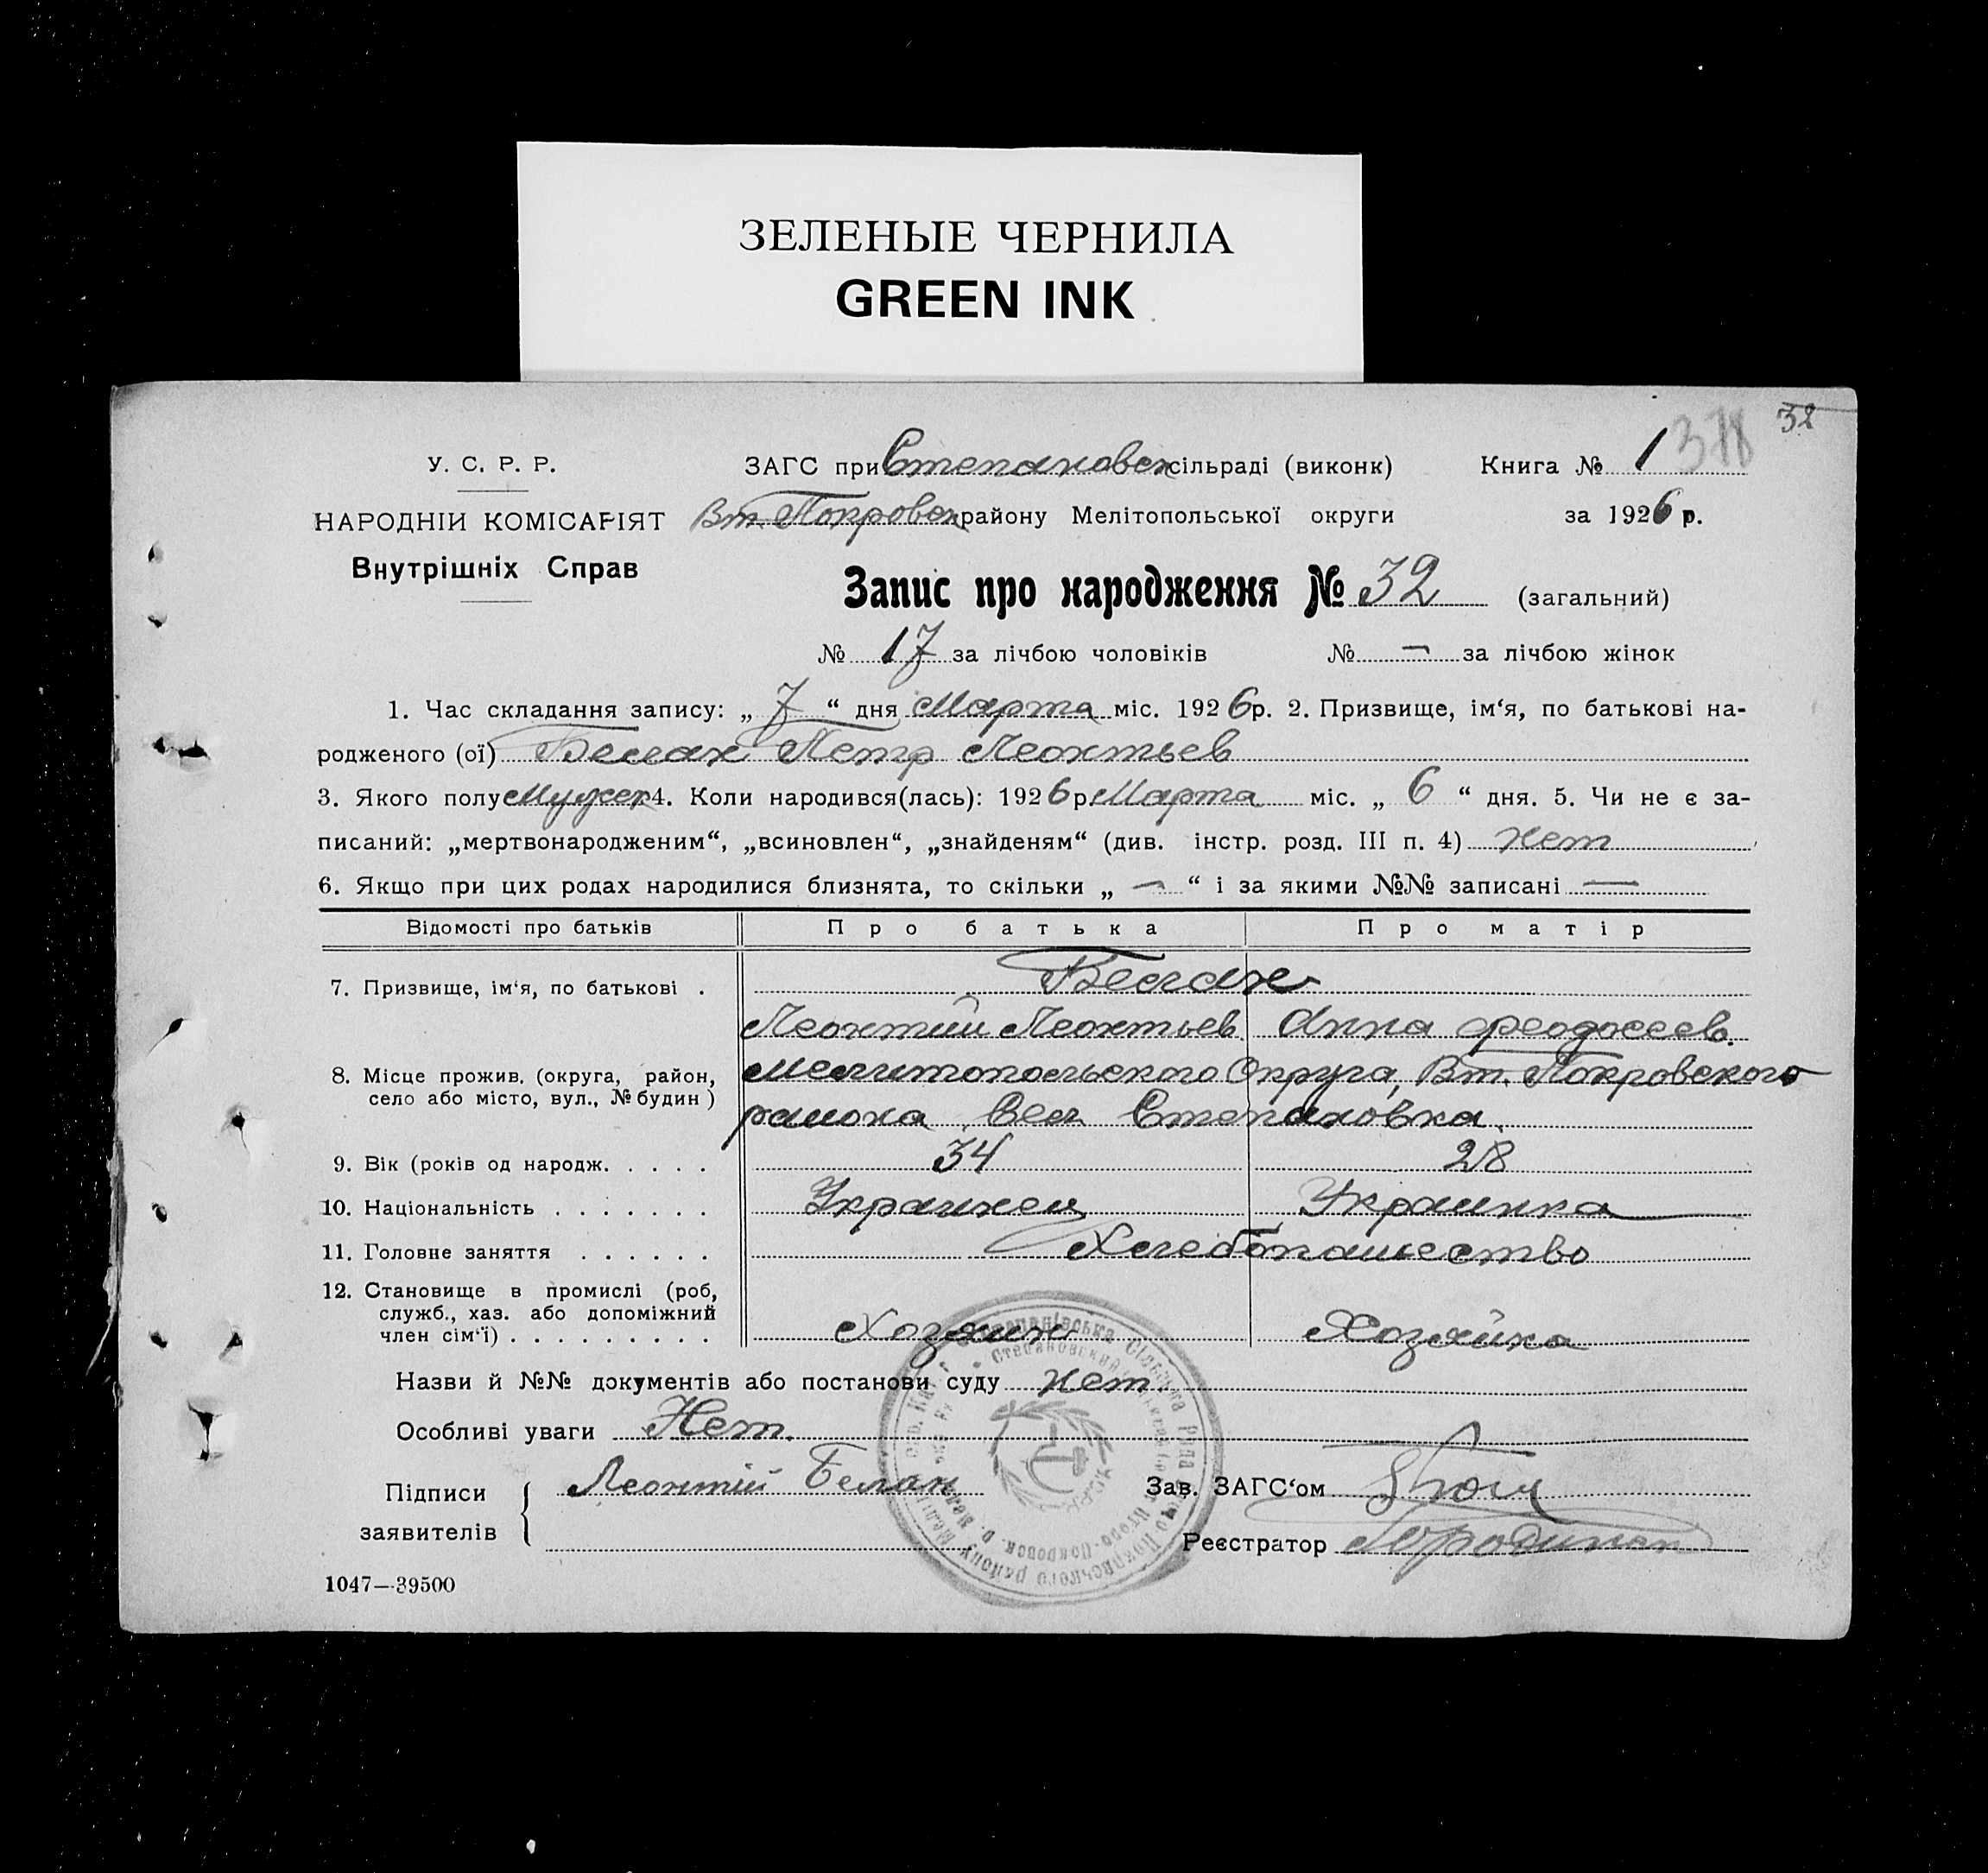 ЗЕЛЕНЫЕ ЧЕРНИЛА
GREEN INK
32
У. С. Р. Р. ЗАГС при Степановск сільраді (виконк) Книга № 1 378
НАРОДНІЙ КОМІСАРІЯТ Вт. Покровск району Мелітопольської округи за 1926 р.
Внутрішніх Справ
Запис про народження № 32 (загальний)
№ 17 за лічбою чоловіків № — за лічбою жінок
1. Час складання запису: „ 7 “ дня Марта міс. 1926 р. 2. Призвище, ім‘я, по батькові на-
родженого (ої) Белан Петр Леонтьев
3. Якого полу Мужск 4. Коли народився(лась): 1926 р. Марта міс. „ 6 “ дня. 5. Чи не є за-
писаний: „мертвонародженим“, „всиновлен“, „знайденям“ (див. інстр. розд. III п. 4) нет
6. Якщо при цих родах народилися близнята, то скільки „ — “ і за якими №№ записані —
Відомості про батьків Про батька Про матір
7. Призвище, ім‘я, по батькові . Белан
Леонтий Леонтьев. Анна Феодосеев.
8. Місце прожив. (округа, район, Мелитопольского Округа, Вт. Покровского
село або місто, вул., № будин) района, Сел Степановка.
9. Вік (років од народж. . . . . 34 28
10. Національність . . . . . . . Украинец Украинка
11. Головне заняття . . . . . . Хлебопашество
12. Становище в промислі (роб,
служб., хаз. або допоміжний
член сім‘ї) . . . . . . . . . Хозяин Хозяйка
Назви й №№ документів або постанови суду нет.
Особливі уваги Нет.
Підписи Леонтій Белан Зав. ЗАГС‘ом
заявителів Реєстратор
1047—39500